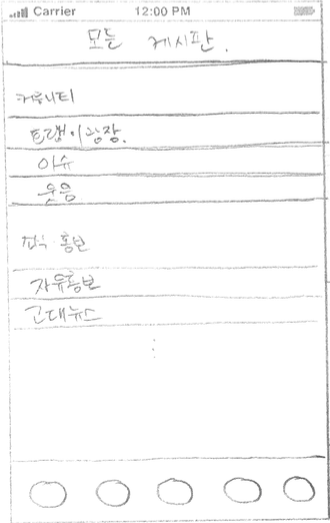 Carrier 12:00 PM
모든 게시판.
커뮤니티
이슈
웃음
홍보
자유홍보
고대뉴스